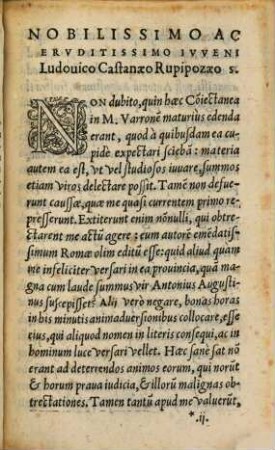 NOBILISSIMO AC
ERVDITISSIMO IVVENI
Ludouico Castanæo Rupipozæo s.
NON dubito, quin hæc Cõiectanea
in M. Varronẽ maturius edenda
erant, quod à quibusdam ea cu-
pidè expectari sciebã: materia
autem ea est, vt vel studiosos iuuare, summos
etiam viros delectare possit. Tamẽ non defue-
runt caussæ, quæ me quasi currentem primo re-
presserunt. Extiterunt enim nõnulli, qui obtre-
ctarent me actũ agere: eum autorẽ emẽdatis-
simum Romæ olim editũ esse: quid aliud quam
me infeliciter versari in ea prouincia, quã ma-
gna cum laude summus vir Antonius Augusti-
nus suscepisset? Alij verò negare, bonas horas
in his minutis animaduersionibus collocare, esse
eius, qui aliquod nomen in literis consequi, ac in
hominum luce versari vellet. Hæc sanè sat nõ
erant ad deterrendos animos eorum, qui norũt
& horum praua iudicia, & illorũ malignas ob-
trectationes. Tamen tantũ apud me valuerũt,
*.ij.